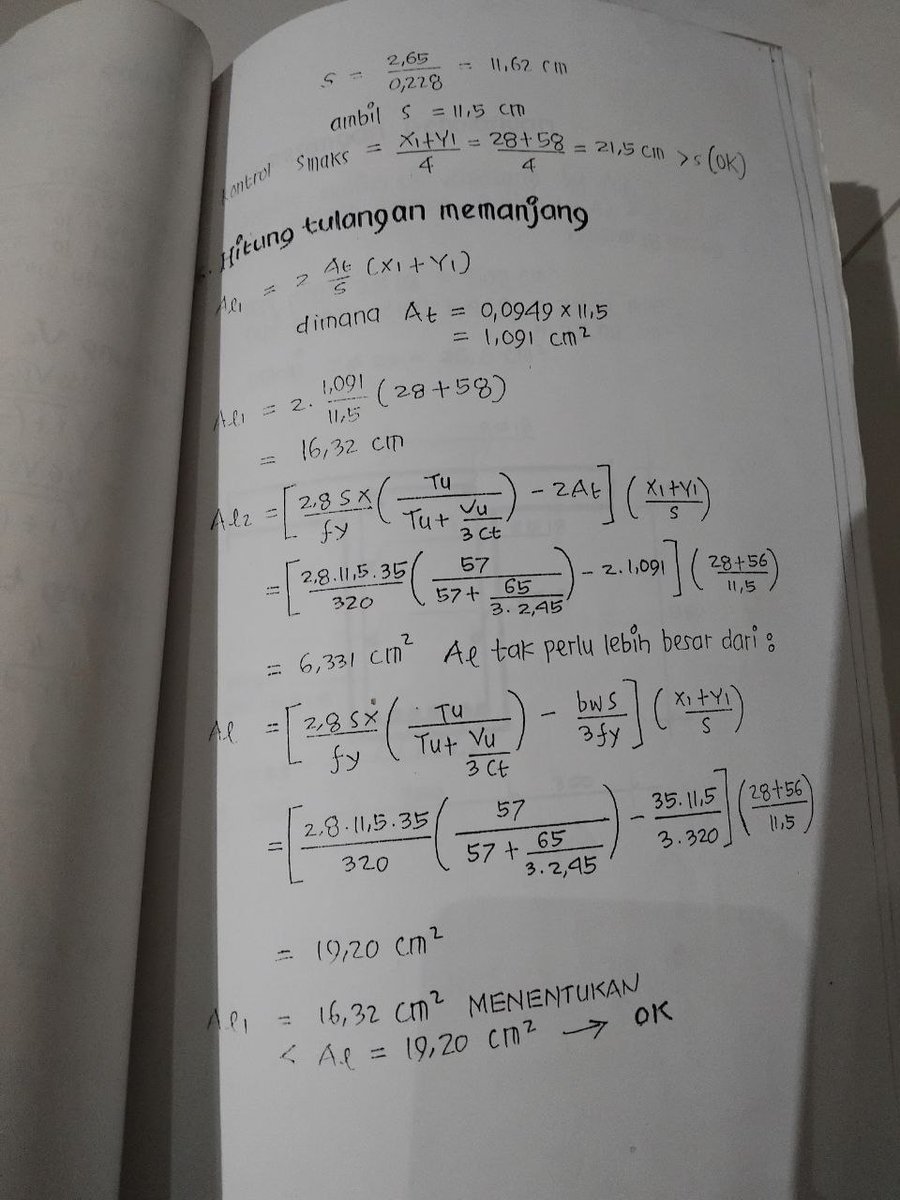 S = 2,65/0,228 = 11,62 cm
ambil S = 11,5 cm
kontrol Smaks = X1+Y1/4 = 28+58/4 = 21,5 cm > s (OK)
. Hitung tulangan memanjang
Al1 = 2 At/S (X1+Y1)
dimana At = 0,0949 x 11,5
= 1,091 cm²
Al1 = 2. 1,091/11,5 (28+58)
= 16,32 cm
Al2 = [2,8 S X/fy (Tu/(Tu + Vu/3Ct)) - 2At] (X1+Y1/S)
= [2,8.11,5.35/320 (57/(57 + 65/3.2,45)) - 2.1,091] (28+56/11,5)
= 6,331 cm² Al tak perlu lebih besar dari :
Al = [2,8 S X/fy (Tu/(Tu + Vu/3Ct)) - bws/3fy] (X1+Y1/S)
= [2,8.11,5.35/320 (57/(57 + 65/3.2,45)) - 35.11,5/3.320] (28+56/11,5)
= 19,20 cm²
Al1 = 16,32 cm² MENENTUKAN
< Al = 19,20 cm² → OK